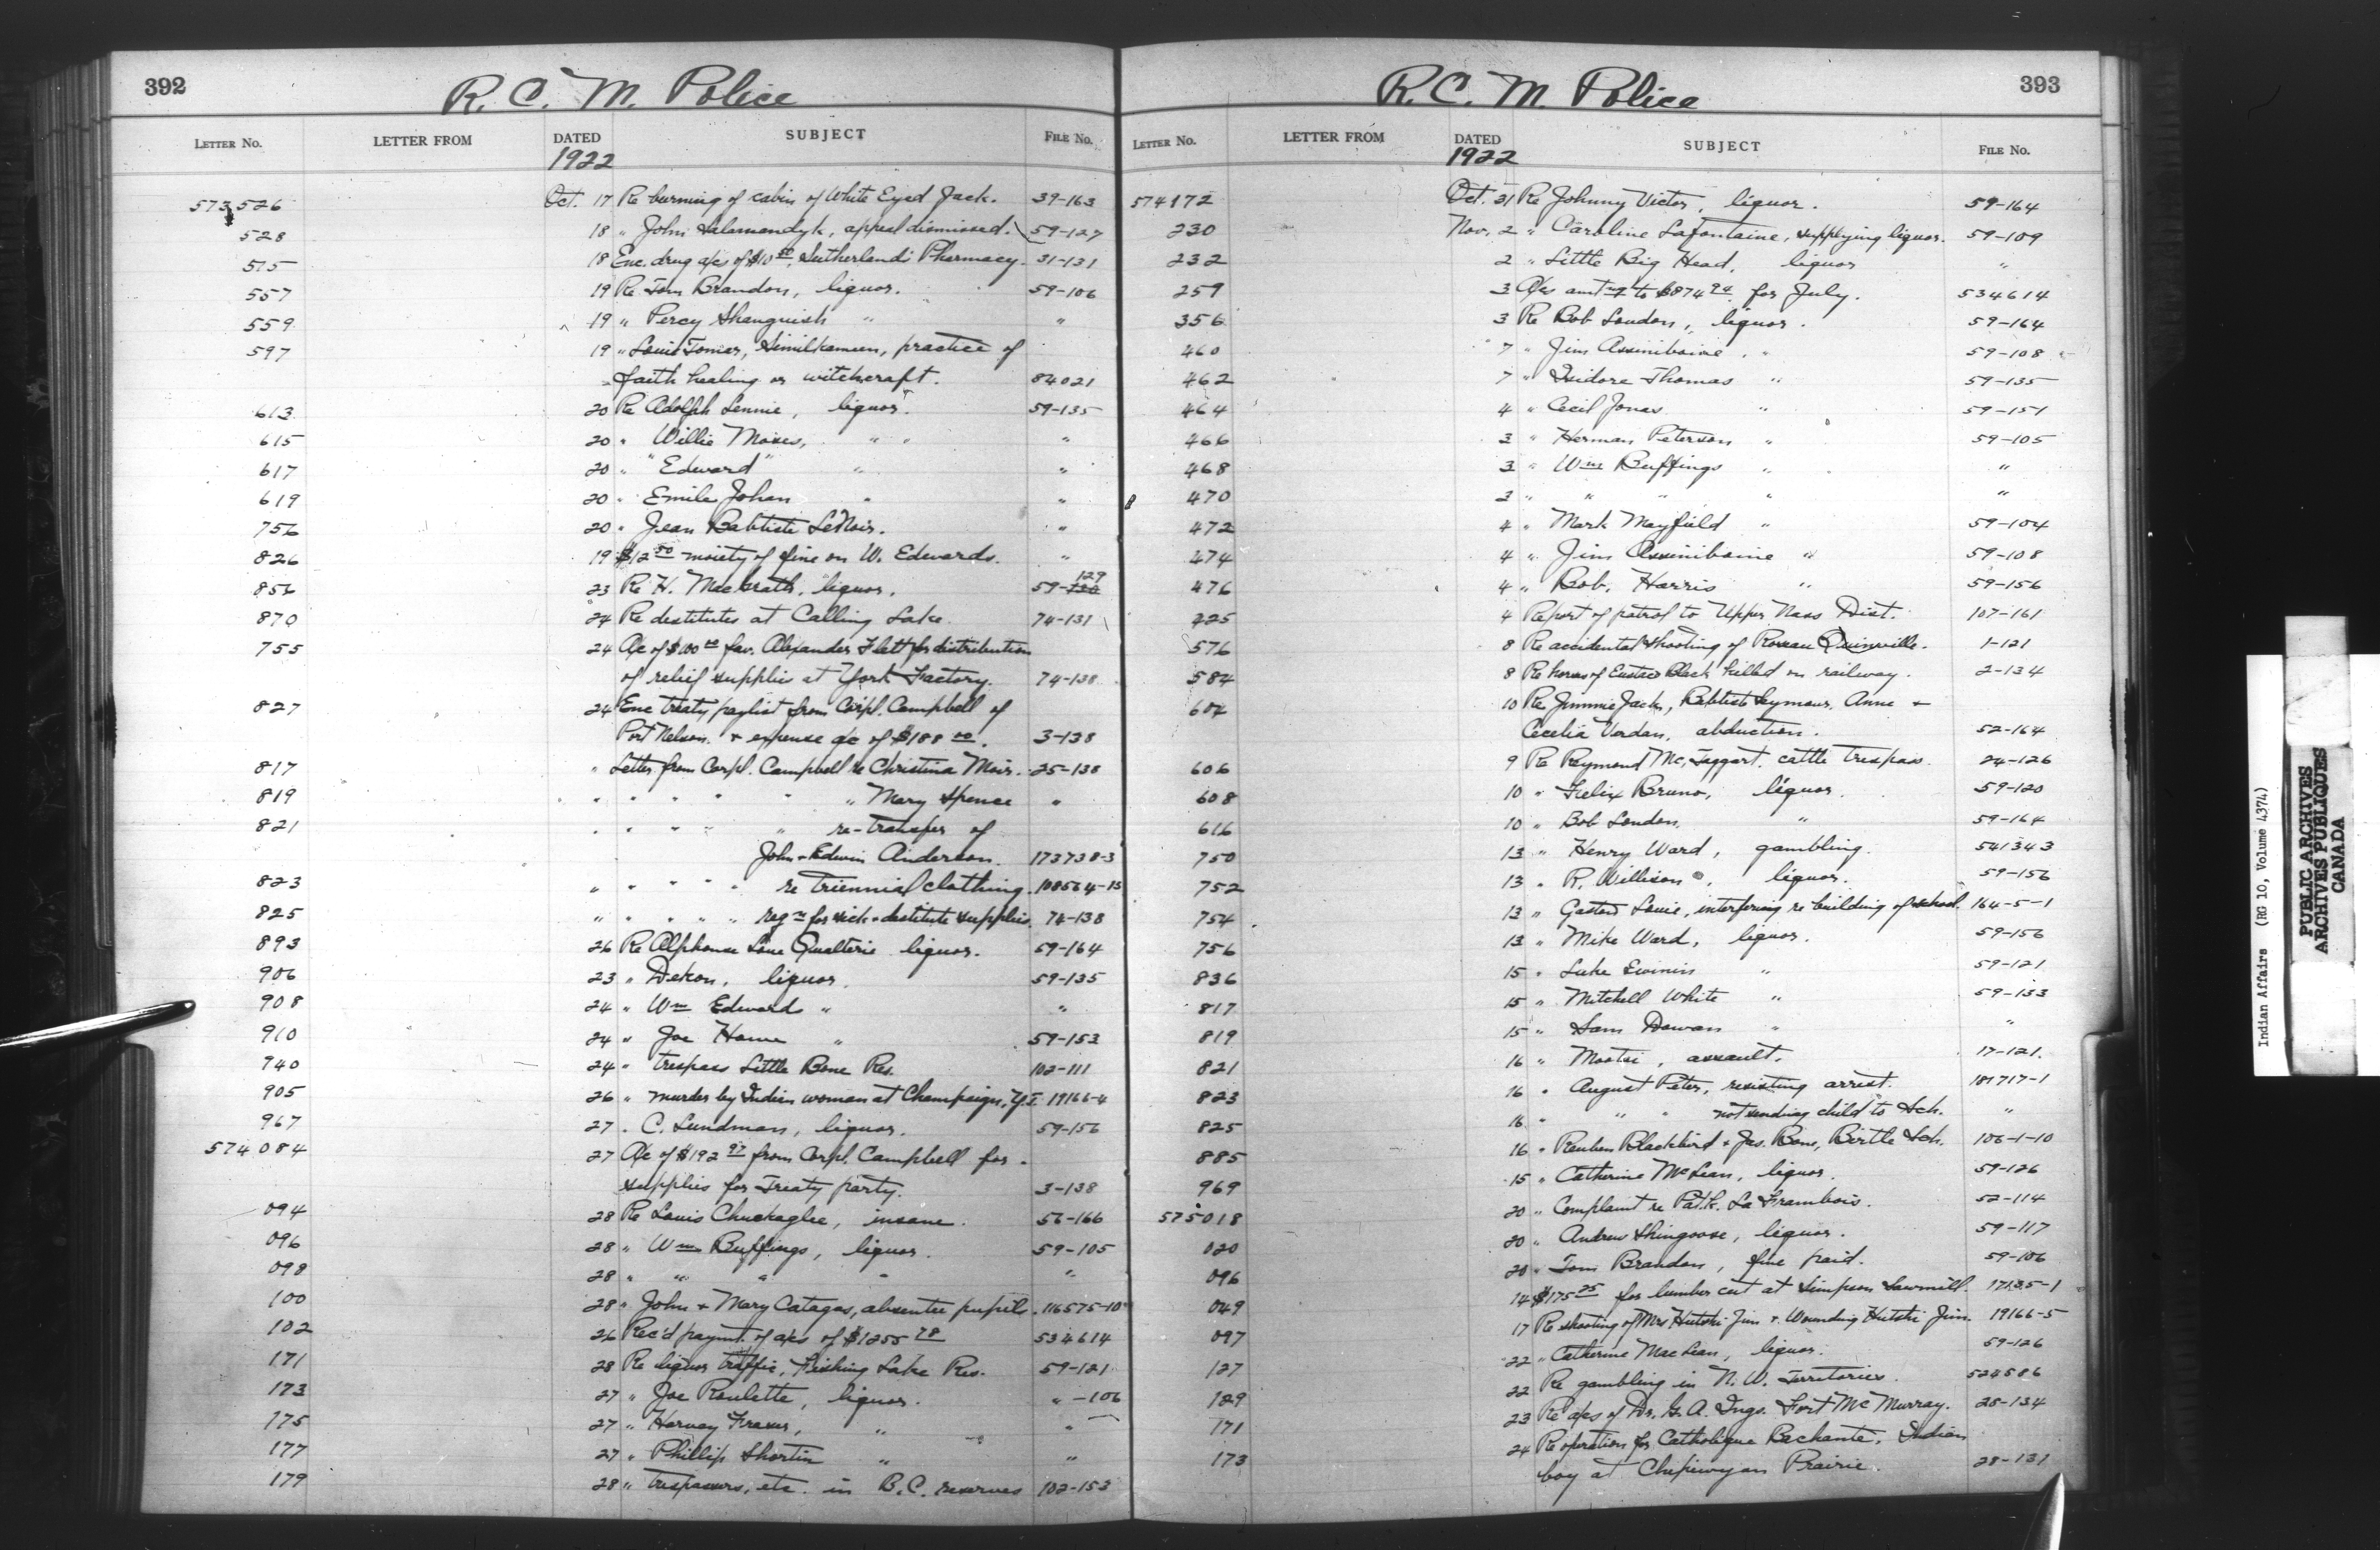 392
R. C. M. Police
LETTER No. LETTER FROM DATED SUBJECT FILE No.
1922
573526 Oct. 17 Re burning of cabin of White Eyed Jack. 39-163
528 18 " John Salamandyk, appeal dismissed. 59-127
515 18 Enc. drug a/cs of $10.50, Sutherland's Pharmacy. 31-131
557 19 Re Tom Brandon, liquor. 59-106
559 19 " Percy Shanguish " "
597 19 " Louis Tomar, Similkameen, practice of
faith healing or witchcraft. 84021
613 20 Re Adolph Lennie, liquor. 59-135
615 20 " Willie Moses, " " "
617 20 " "Edward" " "
619 20 " Emile Johan " "
756 20 " Jean Babtiste LeNoir. "
826 19 $12 50 moiety of fine on W. Edwards. "
856 23 Re H. MacGrath, liquor. 59-129
870 24 Re destitutes at Calling Lake. 74-131
755 24 A/c of $100 00 fav. Alexander Flett for distribution
of relief supplies at York Factory. 74-138
827 24 Enc treaty paylist from Corpl. Campbell of
Port Nelson. + expense a/c of $188 00. 3-138
817 " Letter from Corpl. Campbell re Christina Moir. 25-138
819 " " " " " " Mary Spence "
821 " " " " " re-transfer of
John + Edwin Anderson. 173738-3
823 " " " " " re triennial clothing. 108564-15
825 " " " " " reqn for sick + destitute supplies. 74-138
893 26 Re Alphonse Lone Qualterie liquor. 59-164
906 23 " Dekon, liquor. 59-135
908 24 " Wm Edwards " "
910 24 " Joe Home " 59-153
940 24 " trespass Little Bone Res. 102-111
905 26 " murder by Indian woman at Champaign, Y.T. 19166-4
967 27 " C. Lundman, liquor. 59-156
574084 27 A/c of $192 97 from Corpl. Campbell for
supplies for Treaty party. 3-138
094 28 Re Louis Chuckaglee, insane. 56-166
096 28 " Wm Buffings, liquor. 59-105
098 28 " " " " "
100 28 " John + Mary Catagas, absentee pupils. 116575-10
102 26 Rec'd paymt. of a/cs of $1255 78 534614
171 28 Re liquor traffic, Fishing Lake Res. 59-121
173 27 " Joe Roulette, liquor. " -106
175 27 " Harvey Fraser, " "
177 27 " Phillip Shortin " "
179 28 " trespassers, etc. in B.C. reserves 102-153
393
R. C. M. Police
LETTER No. LETTER FROM DATED SUBJECT FILE No.
1922
574172 Oct. 31 Re Johnny Victor, liquor. 59-164
230 Nov. 2 " Caroline Lafontaine, supplying liquor. 59-109
232 2 " Little Big Head, liquor "
259 3 A/cs amtng to $874 94 for July. 534614
356 3 Re Bob London, liquor. 59-164
460 7 " Jim Assiniboine, " 59-108
462 7 " Isidore Thomas " 59-135
464 4 " Cecil Jonas " 59-151
466 3 " Herman Peterson " 59-105
468 3 " Wm Buffings " "
470 3 " " " " "
472 4 " Mark Mayfield " 59-104
474 4 " Jim Assiniboine " 59-108
476 4 " Bob. Harris " 59-156
225 4 Report of patrol to Upper Nass Dist. 107-161
576 8 Re accidental shooting of Roseau Quinville. 1-121
584 8 Re horses of Eustace Black killed on railway. 2-134
604 10 Re Jimmie Jack, Babtiste Seymour, Anne +
Cecelia Verdan, abduction. 52-164
606 9 Re Raymond McTaggart. cattle trespass. 24-126
608 10 " Felix Bruno, liquor. 59-120
616 10 " Bob London, " 59-164
750 13 " Henry Ward, gambling. 541343
752 13 " R. Willison, liquor. 59-156
754 13 " Gaston Louie, interfering re building of school. 164-5-1
756 13 " Mike Ward, liquor. 59-156
836 15 " Luke Ewinin " 59-121
817 15 " Mitchell White " 59-133
819 15 " Sam Dewan " "
821 16 " Mootsi, assault. 17-121.
823 16 " August Peter, resisting arrest. 181717-1
825 16 " " " not sending child to Sch. "
885 16 " Reuben Blackbird + Jas. Bone, Birtle Sch. 106-1-10
969 15 " Catherine McLean, liquor. 59-126
575018 20 " Complaint re Pat.k. La Frambois. 52-114
020 20 " Andrew Shingoose, liquor. 59-117
096 20 " Tom Brandon, fine paid. 59-106
049 14 $175 25 for lumber cut at Simpson Sawmill. 17135-1
097 17 Re shooting of Mrs Hutshi Jim + Wounding Hutshi Jim. 19166-5
127 22 " Catherine MacLean, liquor. 59-126
129 22 Re gambling in N. W. Territories. 524586
171 23 Re a/cs of Dr. G. A. Ings. Fort McMurray. 28-134
173 24 Re operation for Catholique Bechante, Indian
boy at Chepewyan Prairie. 28-131
Indian Affairs (RG 10, Volume 4374)
PUBLIC ARCHIVES
ARCHIVES PUBLIQUES
CANADA